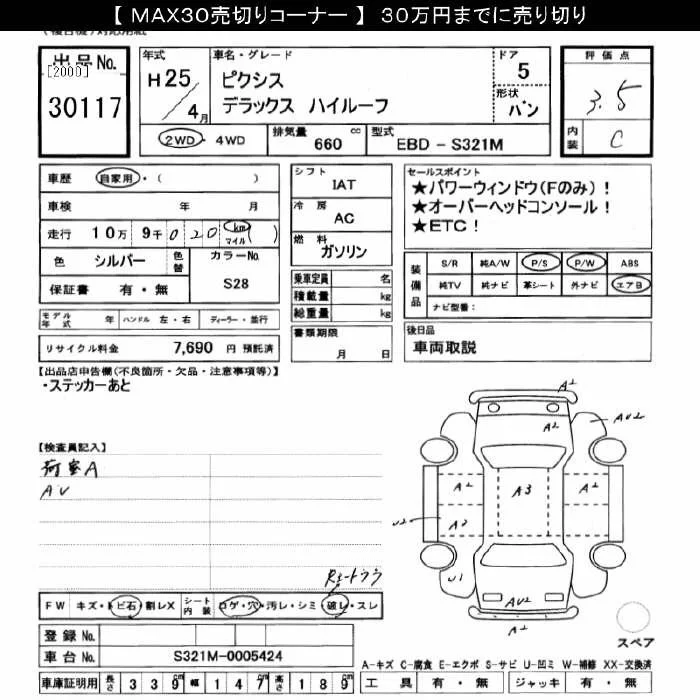 【 MAX30売切りコーナー 】 30万円までに売り切り
出品No.
[2000]
30117
年式
H25/4月
車名・グレード
ピクシス
デラックス ハイルーフ
ドア
5
形状
バン
2WD・4WD
排気量 660 cc
型式 EBD - S321M
評価点
3.5
内装 C
車歴 自家用・( )
車検 年 月
走行 10万 9千 020 km マイル ( )
色 シルバー 色替 カラーNo.
S28
保証書 有・無
モデル年式 年 ハンドル 左・右 ディーラー・並行
リサイクル料金 7,690 円 預託済
シフト
IAT
冷房
AC
燃料
ガソリン
乗車定員 名
積載量 kg
総重量 kg
書類期限
月 日
セールスポイント
★パワーウィンドウ(Fのみ)!
★オーバーヘッドコンソール!
★ETC!
装備品
S/R 純A/W P/S P/W ABS
純TV 純ナビ 革シート 外ナビ エアB
ナビ型番:
後日品
車両取説
【出品店申告欄(不良箇所・欠品・注意事項等)】
・ステッカーあと
【検査員記入】
荷室A
AU
FW キズ・トビ石・割レX シート内装 コゲ・穴・汚レ・シミ・破レ・スレ
登録No.
車台No. S321M-0005424
車庫証明用 長さ 339 幅 147 高さ 189
A2
A2
AU2
A2
A3
A2
U2
A2
U1
AU2
A2
スペア
A-キズ C-腐食 E-エクボ S-サビ U-凹ミ W-補修 XX-交換済
工具 有・無 ジャッキ 有・無